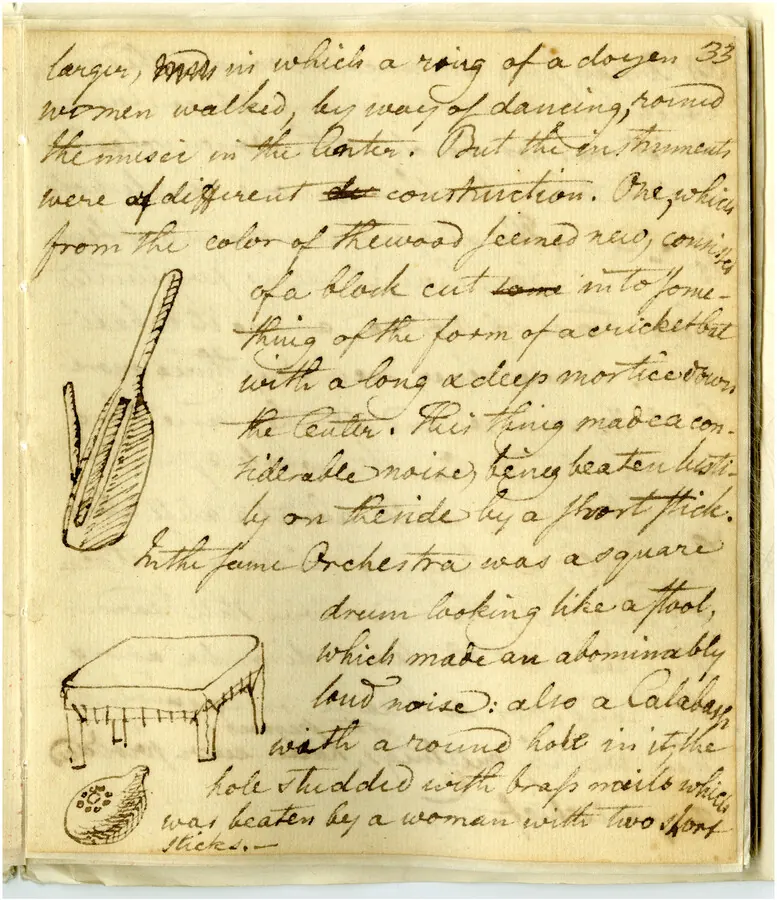 33
larger, in which a ring of a dozen
women walked, by way of dancing, round
the music in the Center. But the instruments
were of different construction. One, which
from the color of the wood seemed new, consisted
of a block cut into some-
thing of the form of a cricket bat
with a long & deep mortice down
the Center. This thing made a con-
siderable noise, being beaten lusti-
ly on the side by a short stick.
In the same Orchestra was a square
drum looking like a stool,
which made an abominably
loud noise: also a Calabash
with a round hole in it, the
hole studded with brass nails which
was beaten by a woman with two short
sticks.—